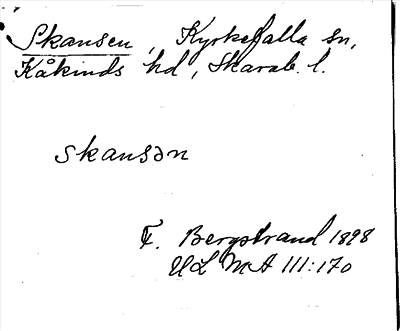 Skansen, Kyrkefalla sn,
Kåkinds hd, Skarab. l.
skansən
F. Bergstrand 1898
ULMA 111:170